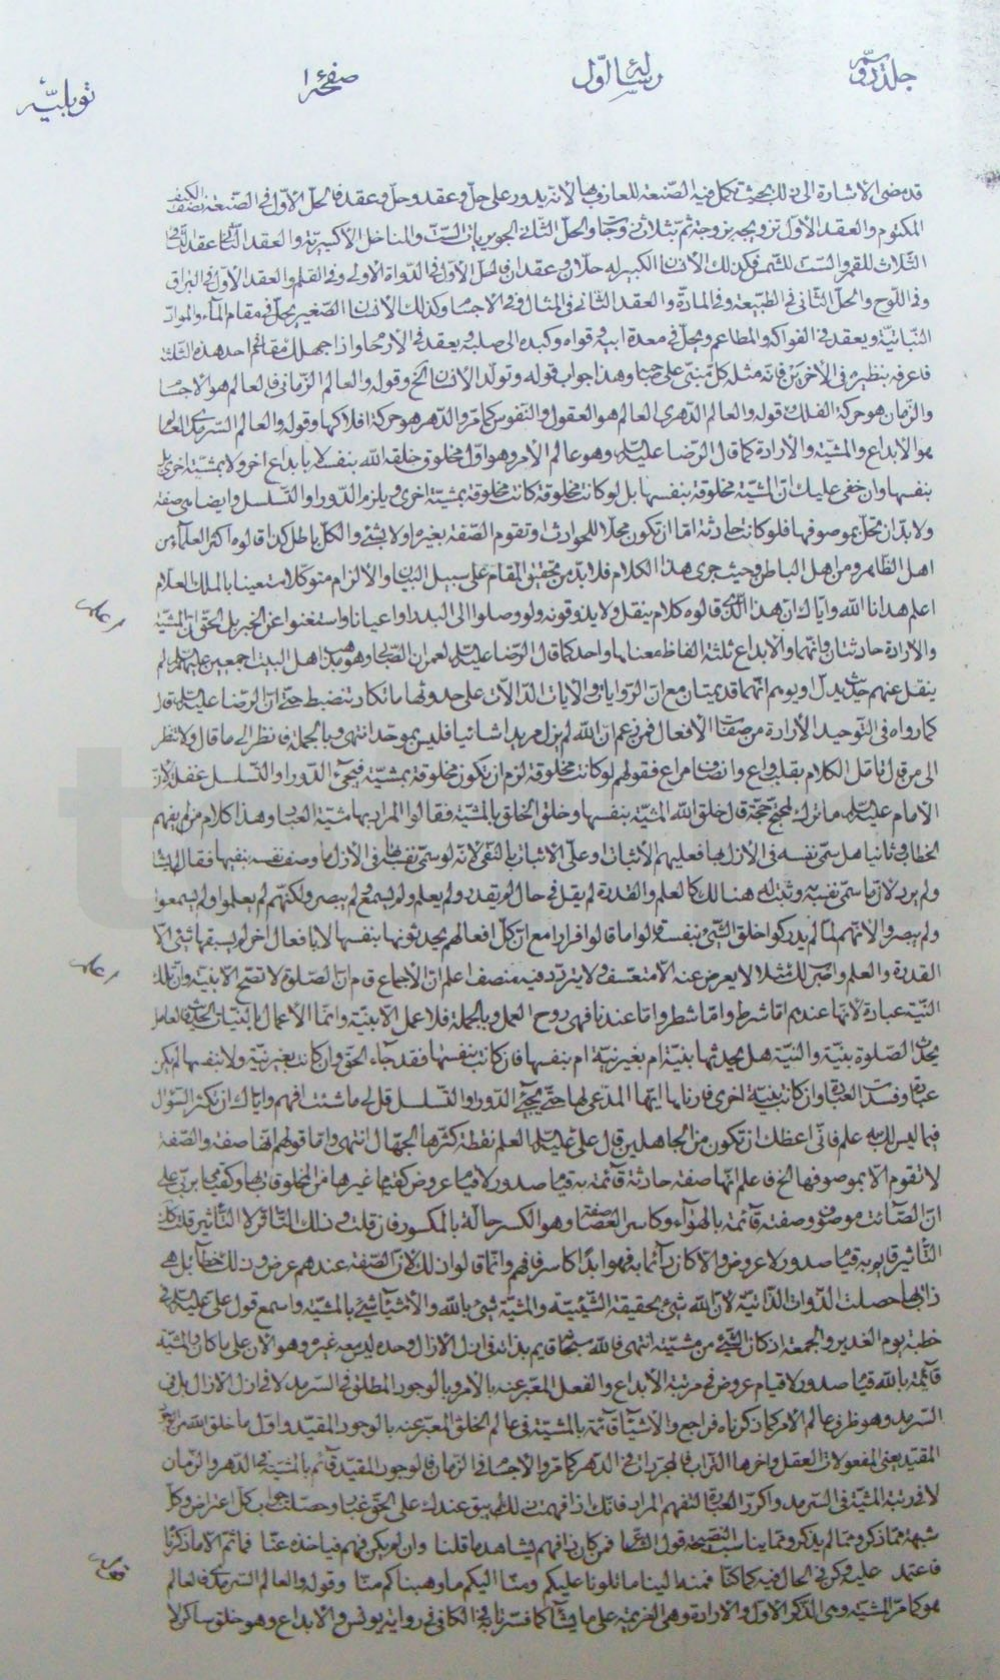 جلد دوم رسالة اول صفحة ١ توبلية
قد مضى الاشارة الى ذلك بحيث تكمل فيه الصنعة للعارف بها لانه يدور على حل وعقد وحل وعقد فالحل الاول في الصنعة نصف الكيف
المكتوم والعقد الاول تزويجه بزوجة ثم بثلاث والحل الثاني والعقد الثاني
الثلاث للقمر والست للشمس فكذلك الانسان الكبير له حلان وعقدان فالحل الاول في الدواة الاولى وفي القلم والعقد الاول في البراق
وفي اللوح والحل الثاني في الطبيعة وفي المادة والعقد الثاني في المثال وفي الاجسام وكذلك الانسان الصغير يحل في مقام الماء والمواد
النباتية ويعقد في الفواكه والمطاعم ويحل في معدة ابيه قواه وكبده الى صلبه ويعقد في الارحام واذا جهل لك مقام احد هذه الثلثة
فاعرفه بنظيره في الاخرين فانه مثله كل مبني على صاحبه وهذا جواب قوله وتولد الانسان الخ وقوله والعالم الزماني فالعالم هو الاجسام
والزمان هو حركة الفلك قوله والعالم الدهري العالم هو العقول والنفوس كما مر والدهر هو حركة افلاكها وقوله والعالم السرمدي العالم
هو الابداع والمشية والارادة كما قال الرضا عليه السلام وهو عالم الامر وهو اول مخلوق خلقه الله بنفسه لا بابداع اخر ولا بمشية اخرى بل
بنفسها وان خفي عليك ان المشية مخلوقة بنفسها بل لو كانت مخلوقة كانت مخلوقة بمشية اخرى ويلزم الدور او التسلسل وايضا هي صفة
ولا بد ان تحل بموصوفها فلو كانت حادثة اما ان تكون محلا للحوادث او تقوم الصفة بغيره او لا بشئ والكل باطل كذا قالوه اكثر العلماء من
اهل الظاهر ومن اهل الباطن وحيث جرى هذا الكلام فلا بد من تحقيق المقام على سبيل البيان والالزام متوكلا مستعينا بالملك العلام
اعلم هدانا الله واياك ان هذا الذي قالوه كلام ينقل ولا يذوقونه ولو وصلوا الى البلد اوا عيانا واستغنوا عن الخبر بل الحق ان المشية
والارادة حادثتان وانهما والابداع ثلثة الفاظ معناها واحد كما قال الرضا عليه السلام لعمران الصابي وهو مذهب اهل البيت اجمعين عليهم السلام لم
ينقل عنهم حديث يدل او يوهم انهما قديمتان مع ان الروايات والايات الدالات على حدوثها ما تكاد تنضبط حتى ان الرضا عليه السلام قال
كما رواه في التوحيد الارادة من صفات الافعال فمن زعم ان الله لم يزل مريدا شائيا فليس بموحد انتهى بالجملة فانظر الى ما قال ولا تنظر
الى من قال تأمل الكلام بقلب واع وانصاف مراع فقولهم لو كانت مخلوقة لزم ان تكون مخلوقة بمشية فيجيء الدور او التسلسل غفلة لان
الامام عليه السلام ما ترك لمحتج حجة قال خلق الله المشية بنفسها وخلق الخلق بالمشية فقالوا المراد بها مشية العباد وهذا كلام من لم يفهم
الخطاب وثانيا هل سمى نفسه في الازل بها فعليهم الاثبات او على الاثبات بالنفي لانه لو سمى نفسه بها في الازل ما وصف نفسه بنفيها فقال
ولم يرد لان ما سمى نفسه به وثبت له هنالك كالعلم والقدرة لم يقل في حال لم يقدر ولم يعلم ولم يسمع ولم يبصر ولكنهم لم يعلموا ولم يسمعوا
ولم يبصروا لانهم لما لم يدركوا خلق الشئ بنفسه قالوا ما قالوا فرارا مع ان كل افعالهم يحدثونها بنفسها لا بافعال اخر لم يسبقها شئ الا
القدرة والعلم واضرب لك مثلا لا يعرض عنه الا متعسف ولا يتردد فيه منصف اعلم ان الاجماع قام ان الصلوة لا تصح الا بنية وان تلك
النية عبادة لانها عندهم اما شرط واما شطر واما عندنا فهي روح العمل وبالجملة فلا عمل الا بنية وانما الاعمال بالنيات الحديث فالعامل
يحدث الصلوة بنية والنية هل يحدثها بنية ام بغير نية ام بنفسها فان كانت بنفسها فقد جاء الحق وان كانت بغير نية ولا بنفسها لم تكن
عبادة وفسدت العبادة وان كانت بنية اخرى فارنا بها ايها المدعي لها حتى يجئ الدور او التسلسل قل لي ما شئت افهم واياك ان تكثر السؤال
فيما ليس لك به علم فاني اعظك ان تكون من الجاهلين قال علي عليه السلام العلم نقطة كثرها الجهال انتهى واما قولهم انها صفة والصفة
لا تقوم الا بموصوفها الخ فاعلم انها صفة حادثة قائمة به قيام صدور لا قيام عروض كقيام غيرها من المخلوقات بها وكفى بما برى على
ان الصائت موصوف وصفته قائمة بالهواء وكاسر العصا صفته وهو الكسر حالة بالمكسور فان قلت ذلك التاثر لا التأثير قلت كان
التأثير قايم به قيام صدور لا عروض والا كان دائما به فهو ابدا كاسر فافهم وانما قالوا ذلك لان الصفة عندهم عرض وذلك خطأ بل هي
ذات بها حصلت الذوات الذاتية لان الله شئ بحقيقة الشيئية والمشية شئ بالله والاشياء شئ بالمشية واسمع قول علي عليه السلام في
خطبة يوم الغدير والجمعة اذ كان الشئ من مشيته انتهى فالله سبحانه قايم بذاته في ازل الازال وحده ليس معه غيره وهو الان على ما كان والمشية
قائمة بالله قيام صدور لا قيام عروض في مرتبة الابداع والفعل المعبر عنه بالامر وبالوجود المطلق في السرمد لا في ازل الازال بل في
السرمد وهو ظرف عالم الامر كما ذكرناه فراجع والاشياء قائمة بالمشية في عالم الخلق المعبر عنه بالوجود المقيد واول ما خلق الله من الوجود
المقيد يعني المفعولات العقل واخرها التراب فالمجردات في الدهر كما مر والاجسام في الزمان فالوجود المقيد قائم بالمشية في الدهر والزمان
لا في رتبة المشية في السرمد واكرر العبارة لتفهم المراد فانك اذا فهمت عندك على الحق عيانا وحصلت جواب كل اعتراض وكل
شبهة مما ذكر ومما لم يذكر ومما يناسب النصيحة قول الشاعر فمن كان ذا فهم يشاهد ما قلنا وان لم يكن فهم فيأخذه عنا فما ثم الا ما ذكرنا
فاعتمد عليه وكن في الحال فيه كما كنا فمنه الينا ما تلونا عليكم ومنا اليكم ما وهبناكم منا وقوله والعالم السرمدي فالعالم
هو كما مر المشية وهي الذكر الاول والارادة وهي العزيمة على ما يشاء كما فسرناه في الكافي في رواية يونس والابداع وهو خلق ساكن لا